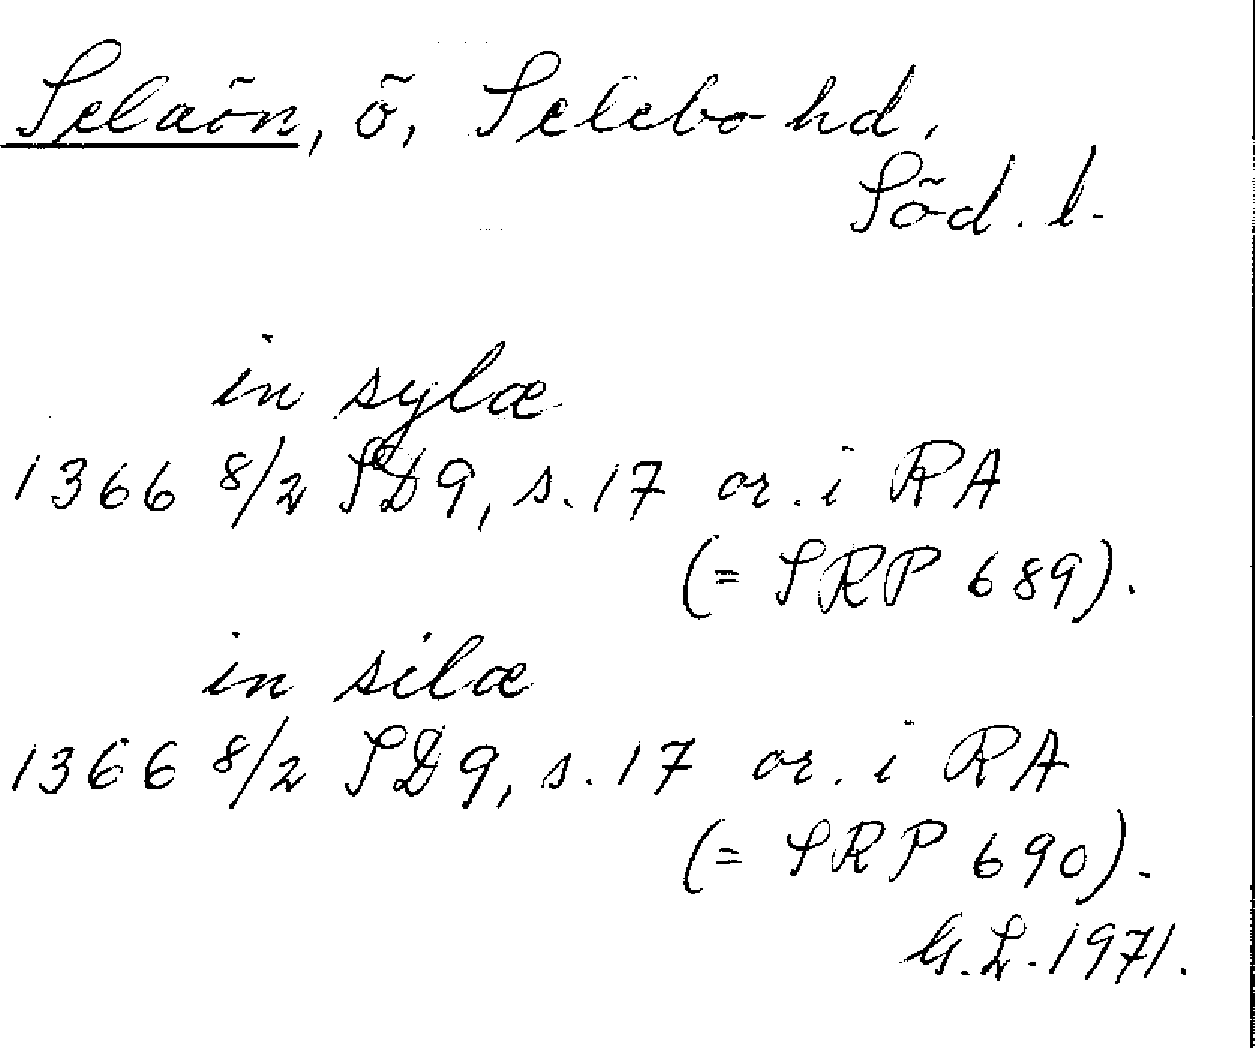 Selaön, ö, Selebo hd,
Söd. l.
in sylæ
1366 8/2 SD9, s. 17 or. i RA
(= SRP 689).
in silæ
1366 8/2 SD9, s. 17 or. i RA
(= SRP 690).
G.L. 1971.